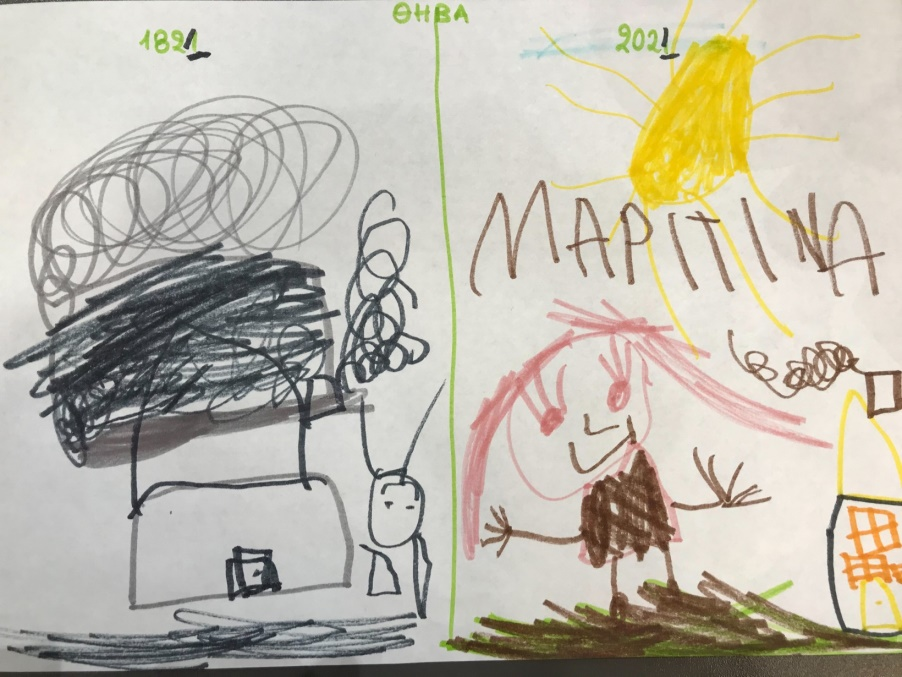 ΘΗΒΑ
1821
2021
ΜΑΡΙΤΙΝΑ